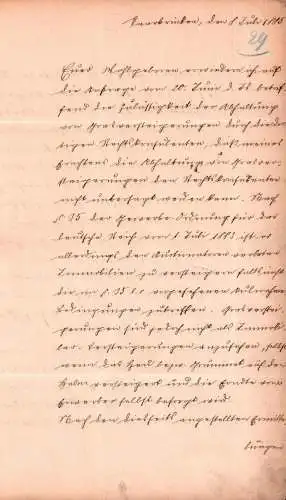 Saarbrücken, den 8. Juli 1885
29
Euer Wohlgeboren erwidere ich auf
die Anfrage vom 20. Juni d. Js. betref
fend die Zulässigkeit der Abhaltung
von Grasversteigerungen durch die dor
tigen Rechtskonsulenten, daß meines
Erachtens die Abhaltung von Grasver
steigerungen den Rechtskonsulenten
nicht untersagt werden kann. Nach
§ 35 der Gewerbe-Ordnung für das
deutsche Reich vom 1. Juli 1883 ist es
allerdings den Auktionatoren verboten
Immobilien zu versteigern falls nicht
die im § 35 l. c. vorgesehenen Ausnahme
bedingungen zutreffen. Grasverstei
gerungen sind jedoch nicht als Immobi
lar-Versteigerungen anzusehen, selbst
wenn das Heu bezw. Grummet auf dem
Halm versteigert und die Erndte vom
Erwerber selbst besorgt wird.
Nach den diesseits angestellten Ermitte
lungen